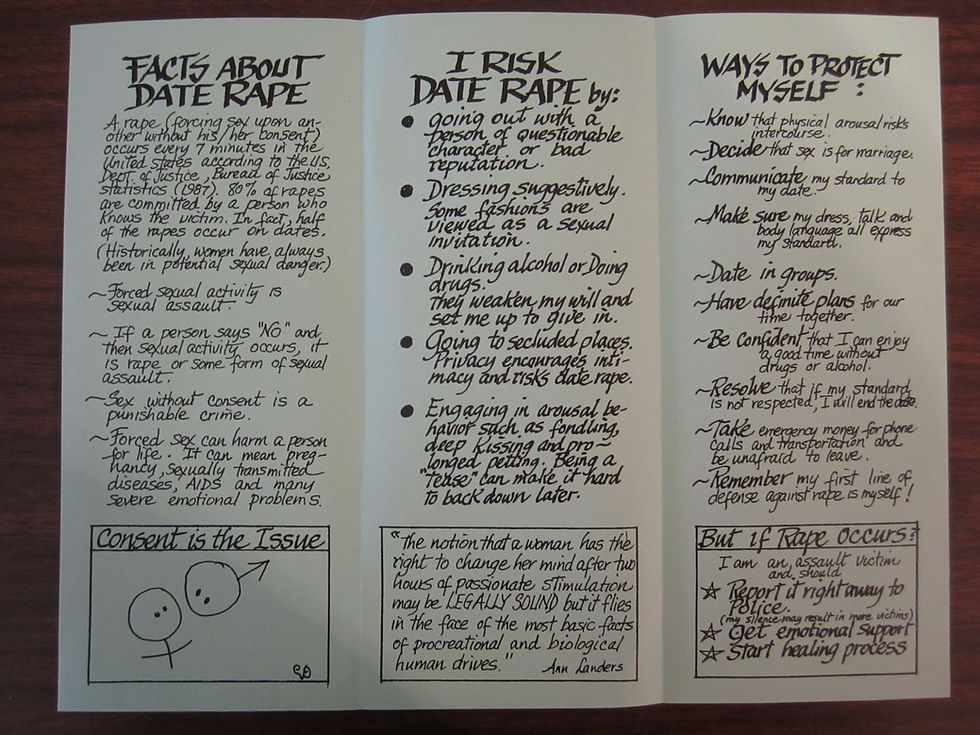 FACTS ABOUT
DATE RAPE
A rape (forcing sex upon an-
other without his/her consent)
occurs every 7 minutes in the
United States according to the U.S.
Dept. of Justice, Bureau of Justice
Statistics (1987). 80% of rapes
are committed by a person who
knows the victim. In fact, half
of the rapes occur on dates.
(Historically, women have always
been in potential sexual danger.)
~Forced sexual activity is
sexual assault.
~ If a person says "NO" and
then sexual activity occurs, it
is rape or some form of sexual
assault.
~Sex without consent is a
punishable crime.
~Forced sex can harm a person
for life. It can mean preg-
nancy, sexually transmitted
diseases, AIDS and many
severe emotional problems.
Consent is the Issue
I RISK
DATE RAPE by:
● going out with a
person of questionable
character or bad
reputation.
● Dressing suggestively.
Some fashions are
viewed as a sexual
invitation.
● Drinking alcohol or Doing
drugs.
They weaken my will and
set me up to give in.
● Going to secluded places.
Privacy encourages inti-
macy and risks date rape.
● Engaging in arousal be-
havior such as fondling,
deep kissing and pro-
longed petting. Being a
"tease" can make it hard
to back down later.
"The notion that a woman has the
right to change her mind after two
hours of passionate stimulation
may be LEGALLY SOUND but it flies
in the face of the most basic facts
of procreational and biological
human drives." Ann Landers
WAYS TO PROTECT
MYSELF :
~Know that physical arousal risks
intercourse.
~Decide that sex is for marriage.
~Communicate my standard to
my date.
~Make sure my dress, talk and
body language all express
my standard.
~Date in groups.
~Have definite plans for our
time together.
~Be Confident that I can enjoy
a good time without
drugs or alcohol.
~Resolve that if my standard
is not respected, I will end the date.
~Take emergency money for phone
calls and transportation and
be unafraid to leave.
~Remember my first line of
defense against rape is myself!
But if Rape Occurs?
I am an assault victim
and should
☆ Report it right away to
Police.
(my silence may result in more victims)
☆ Get emotional support
☆ Start healing process